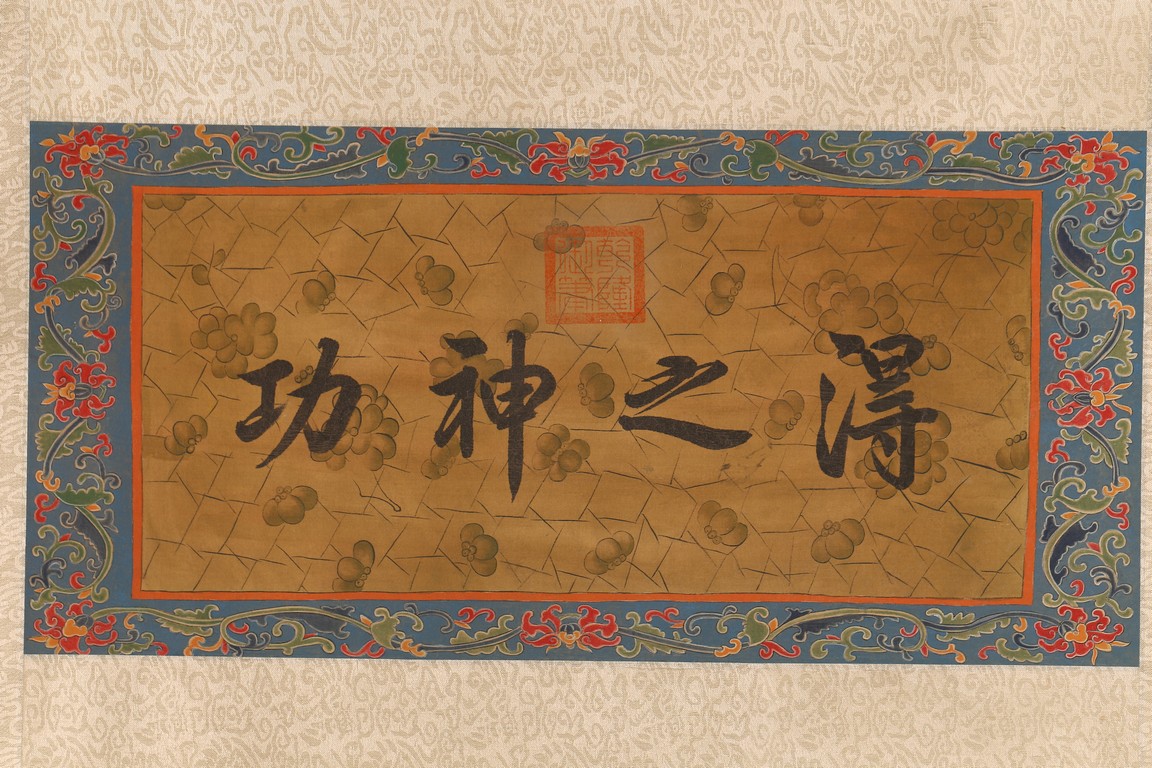 得之神功